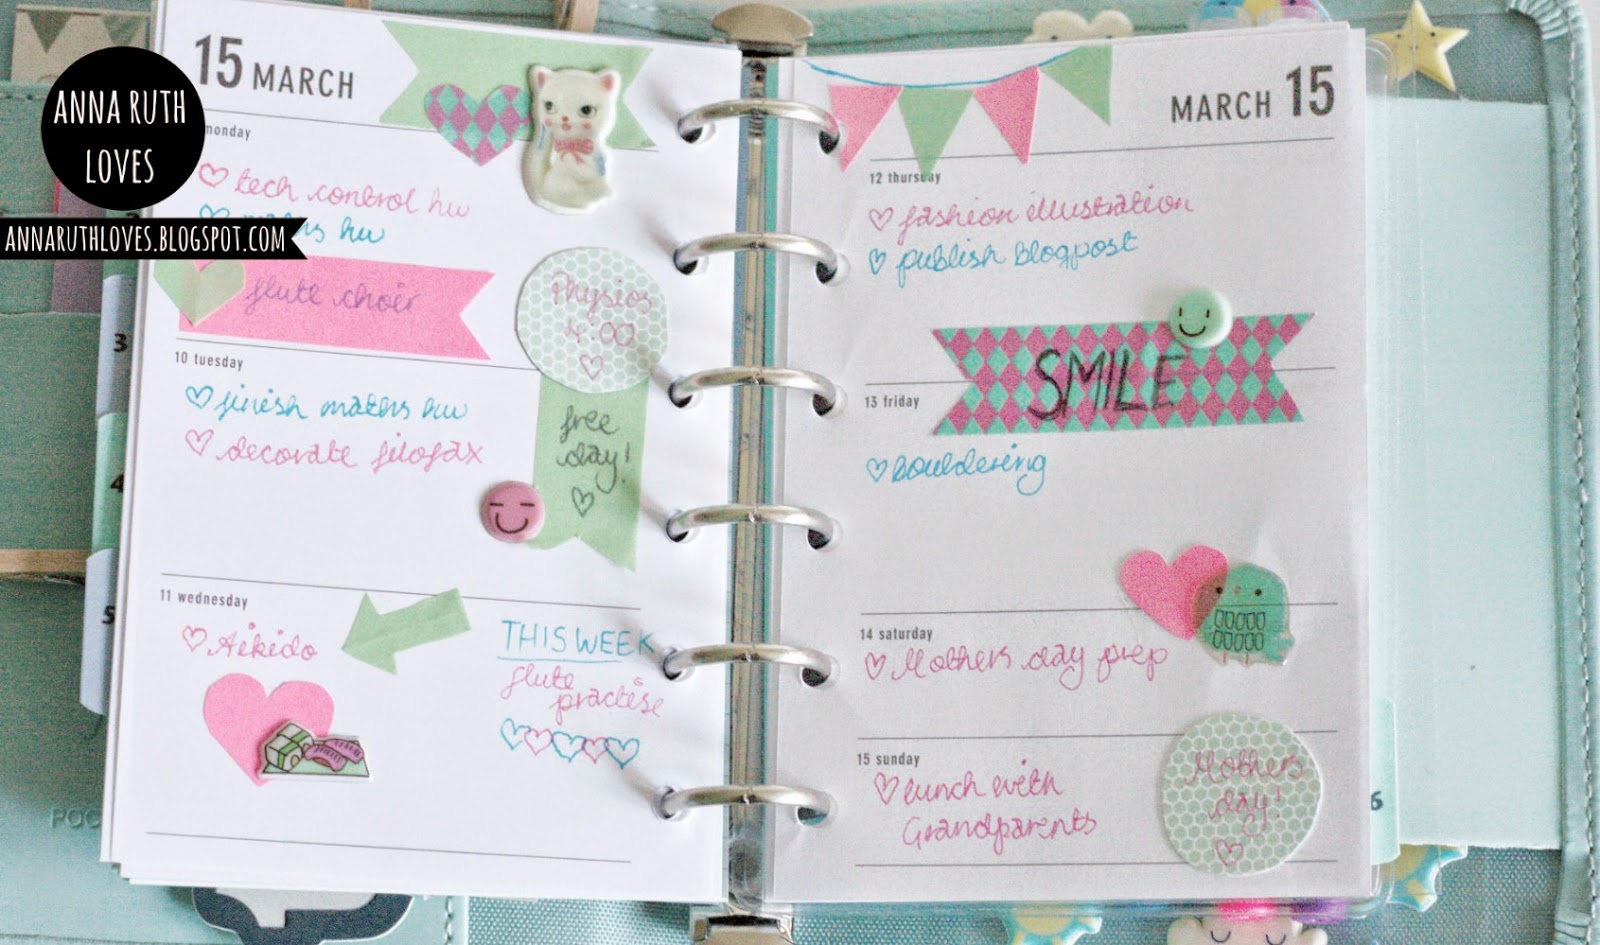 ANNA RUTH
LOVES
ANNARUTHLOVES.BLOGSPOT.COM
15 MARCH
monday
♡ tech control hw
hw
flute choir
Physics
4:00
♡
10 tuesday
♡ finish maths hw
♡ decorate filofax
free
day!
♡
11 wednesday
♡ Aikido
THIS WEEK
flute
practise
♡♡♡♡♡
MARCH 15
12 thursday
♡ fashion illustration
♡ publish blogpost
SMILE
13 friday
♡ Bouldering
14 saturday
♡ Mothers day prep
15 sunday
♡ lunch with
Grandparents
Mothers
day!
♡
3
4
5
6